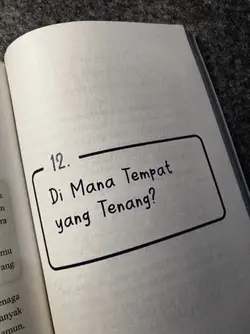 12.
Di Mana Tempat
yang Tenang?
ra
mu
ang
enaga
anyak
amun,